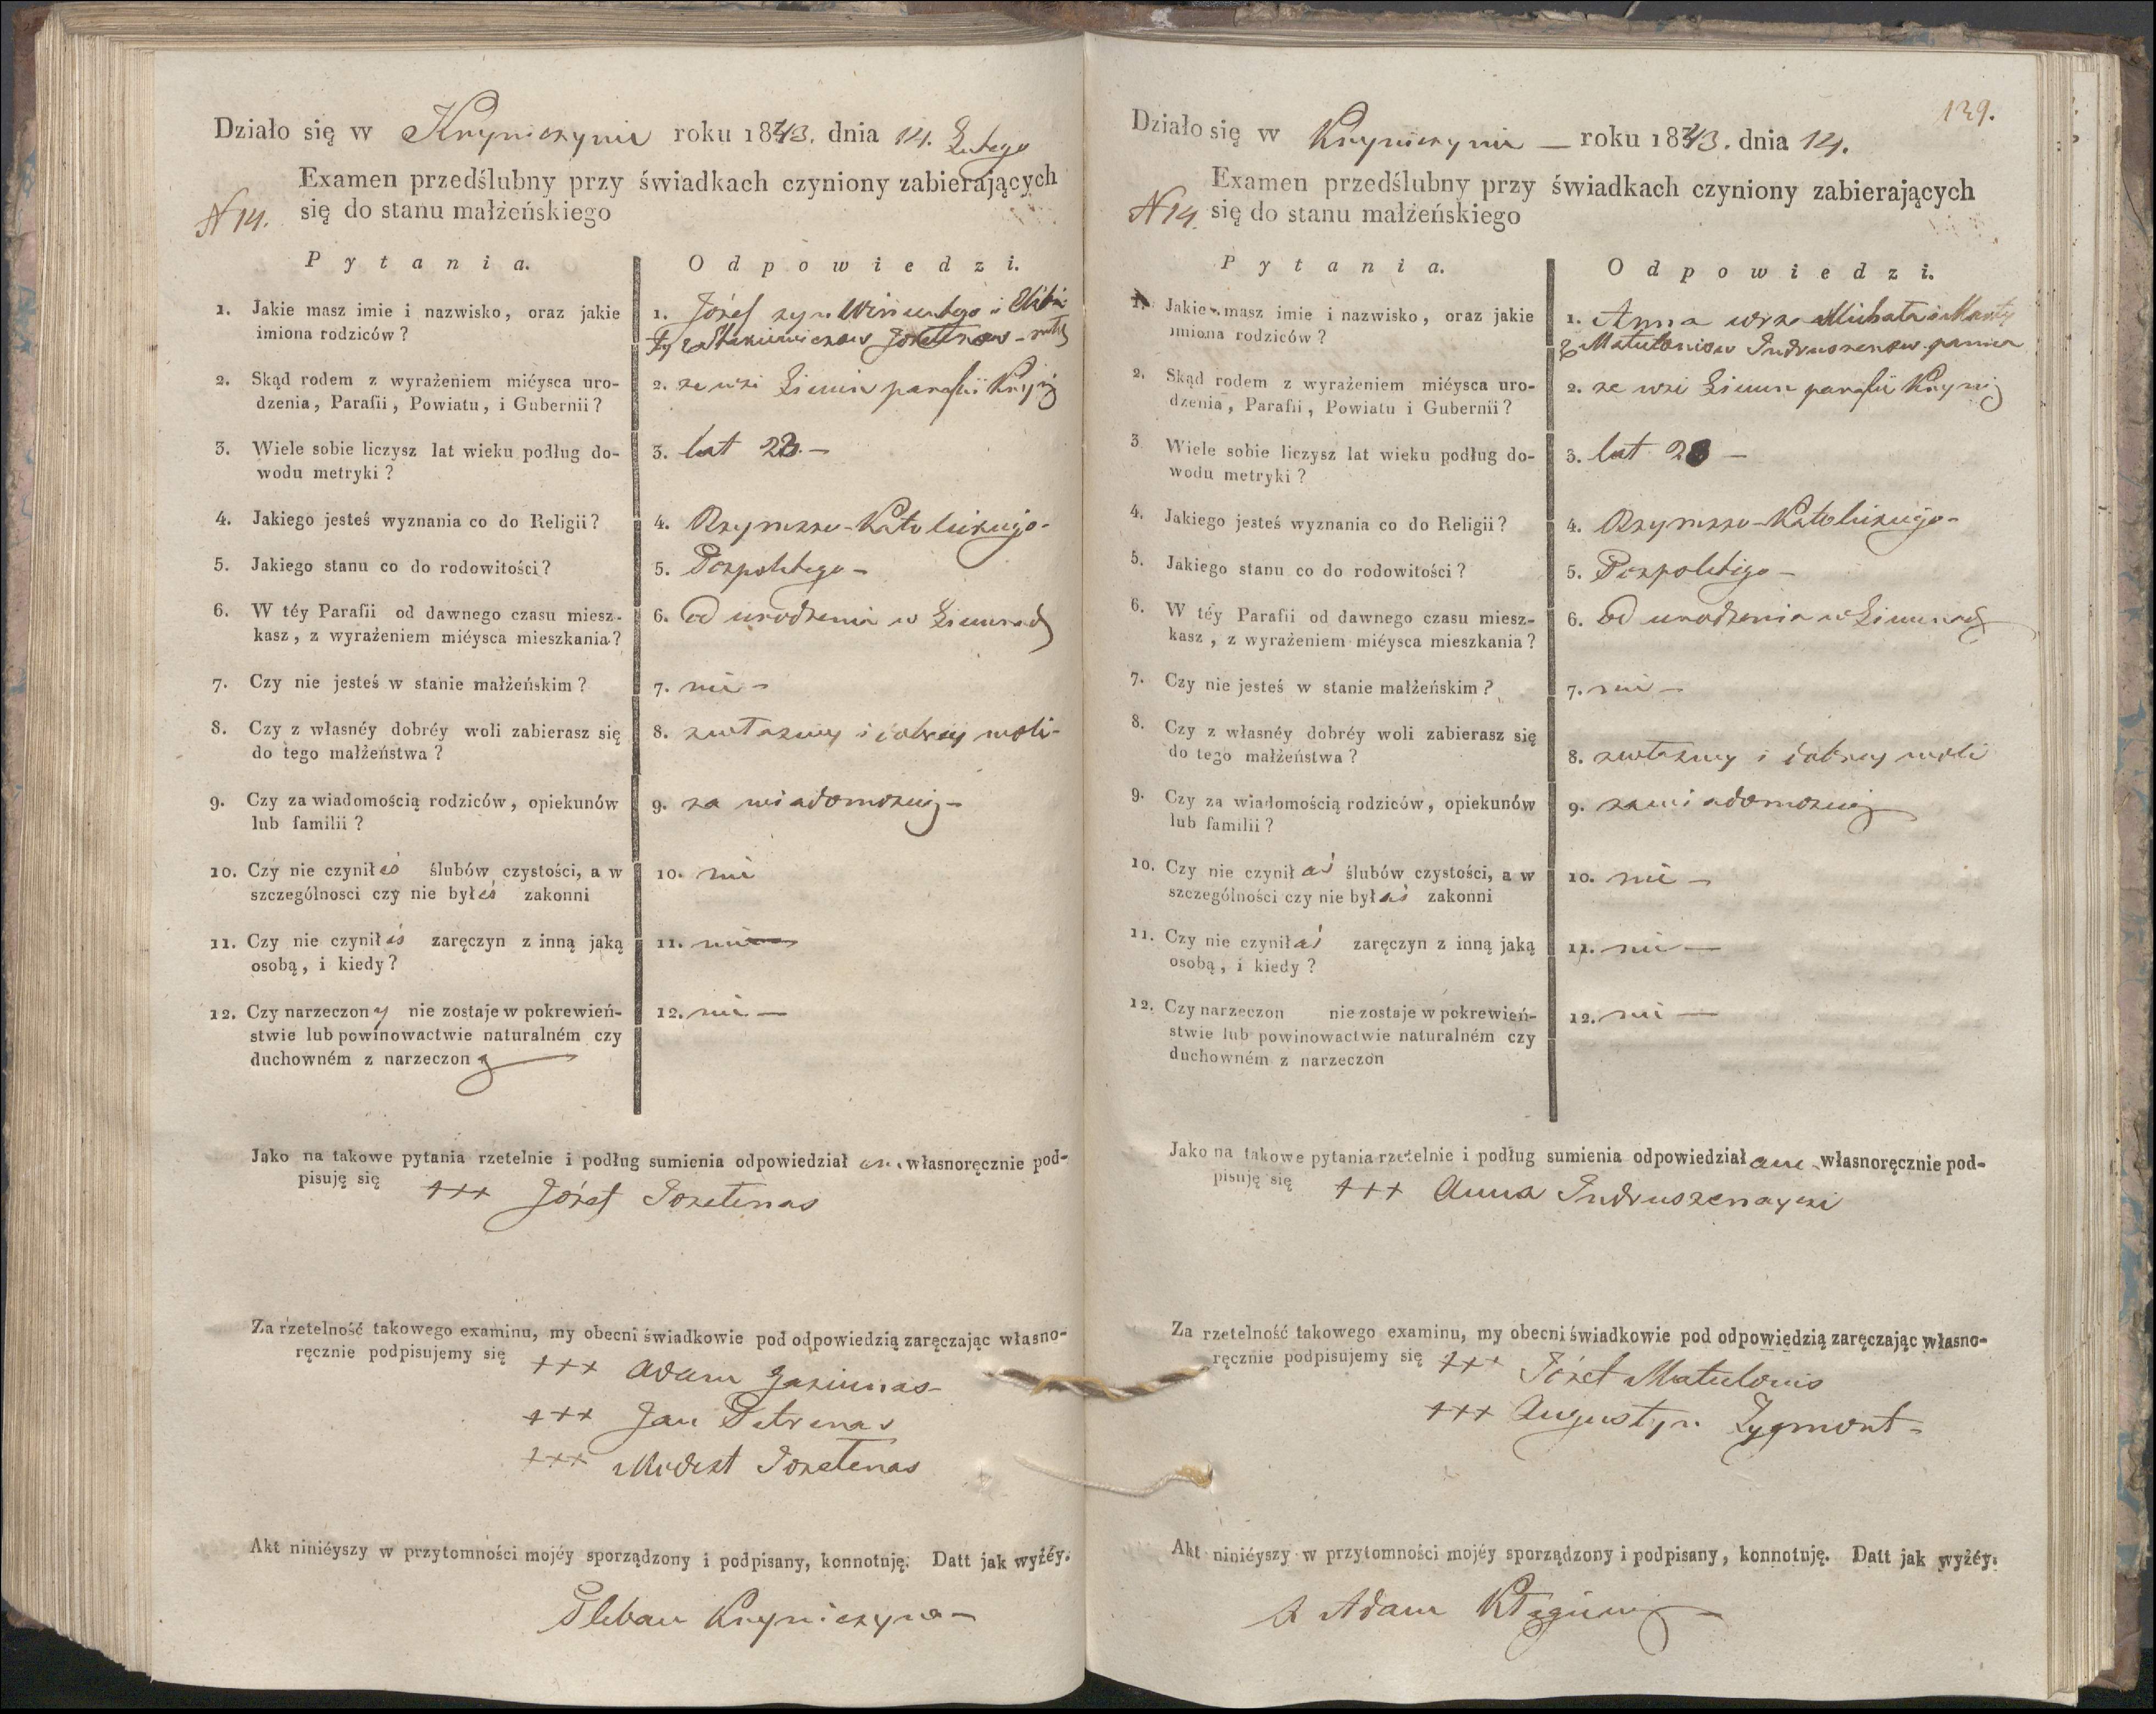 Działo się w Knyniczynie roku 1843. dnia 14. Lutego
Examen przedślubny przy świadkach czyniony zabierających
N 14. się do stanu małżeńskiego
Pytania. Odpowiedzi.
1. Jakie masz imie i nazwisko, oraz jakie
imiona rodziców?
1. Józef syn Wincentego i
2. Skąd rodem z wyrażeniem miéysca uro-
dzenia, Parafii, Powiatu, i Gubernii?
2. ze wsi parafii
3. Wiele sobie liczysz lat wieku podług do-
wodu metryki?
3. lat
4. Jakiego jesteś wyznania co do Religii?
4. Rzymsko-Katolickiego-
5. Jakiego stanu co do rodowitości?
5. Pospolitego-
6. W téy Parafii od dawnego czasu miesz-
kasz, z wyrażeniem miéysca mieszkania?
6. Od urodzenia w
7. Czy nie jesteś w stanie małżeńskim?
7. nie-
8. Czy z własnéy dobréy woli zabierasz się
do tego małżeństwa?
8. zwłasney i dobrey woli-
9. Czy za wiadomością rodziców, opiekunów
lub familii?
9. za wiadomością-
10. Czy nie czyniłeś ślubów czystości, a w
szczególnosci czy nie byłeś zakonni
10. nie
11. Czy nie czyniłeś zaręczyn z inną jaką
osobą, i kiedy?
11. nie
12. Czy narzeczony nie zostaje w pokrewień-
stwie lub powinowactwie naturalném czy
duchowném z narzeczoną
12. nie-
Jako na takowe pytania rzetelnie i podług sumienia odpowiedział własnoręcznie pod-
pisuję się +++ Józef Jozetenas
Za rzetelność takowego examinu, my obecni świadkowie pod odpowiedzią zaręczając własno-
ręcznie podpisujemy się +++ Adam
+++ Jan Petrenas
+++ Modest Jozetenas
Akt niniéyszy w przytomności mojéy sporządzony i podpisany, konnotuję. Datt jak wyżéy.
Pleban
139.
Działo się w Knyniczynie roku 1843. dnia 14.
Examen przedślubny przy świadkach czyniony zabierających
N 14. się do stanu małżeńskiego
Pytania. Odpowiedzi.
1. Jakie masz imie i nazwisko, oraz jakie
imiona rodziców?
1. Anna Michała i
panna
2. Skąd rodem z wyrażeniem miéysca uro-
dzenia, Parafii, Powiatu i Gubernii?
2. ze wsi parafii
3. Wiele sobie liczysz lat wieku podług do-
wodu metryki?
3. lat
4. Jakiego jesteś wyznania co do Religii?
4. Rzymsko-Katolickiego-
5. Jakiego stanu co do rodowitości?
5. Pospolitego-
6. W téy Parafii od dawnego czasu miesz-
kasz, z wyrażeniem miéysca mieszkania?
6. Od urodzenia w
7. Czy nie jesteś w stanie małżeńskim?
7. nie-
8. Czy z własnéy dobréy woli zabierasz się
do tego małżeństwa?
8. zwłasney i dobrey woli
9. Czy za wiadomością rodziców, opiekunów
lub familii?
9. za wiadomością
10. Czy nie czyniłaś ślubów czystości, a w
szczególności czy nie byłaś zakonni
10. nie-
11. Czy nie czyniłaś zaręczyn z inną jaką
osobą, i kiedy?
11. nie-
12. Czy narzeczon nie zostaje w pokrewień-
stwie lub powinowactwie naturalném czy
duchowném z narzeczon
12. nie-
Jako na takowe pytania rzetelnie i podług sumienia odpowiedział własnoręcznie pod-
pisuję się +++ Anna
Za rzetelność takowego examinu, my obecni świadkowie pod odpowiedzią zaręczając własno-
ręcznie podpisujemy się +++ Józef Matulonis
+++ Augustyn Zygmont-
Akt niniéyszy w przytomności mojéy sporządzony i podpisany, konnotuję. Datt jak wyżéy.
X Adam